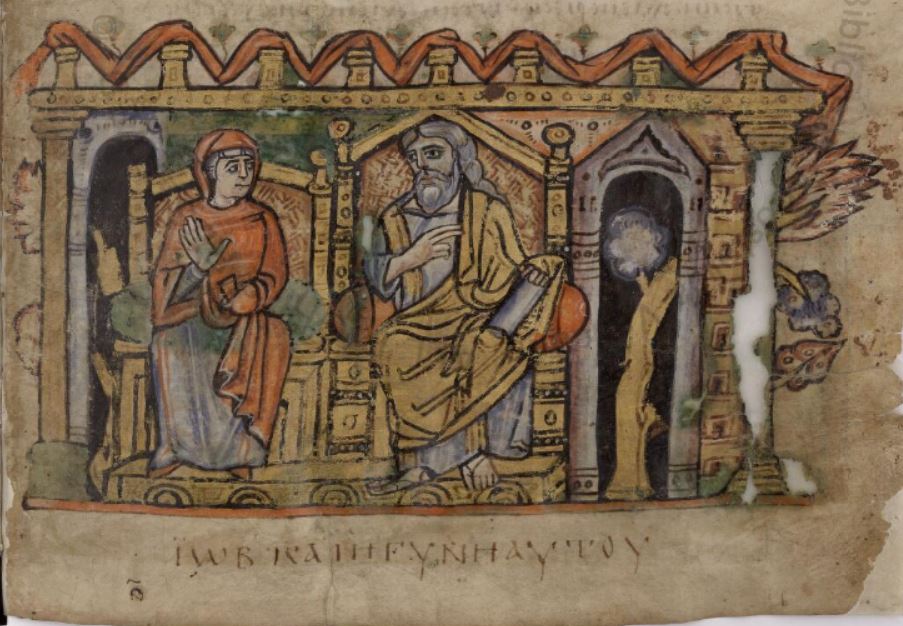 ΪΩΒ ΚΑΙ Η ΓΥΝΗ ΑΥΤΟΥ